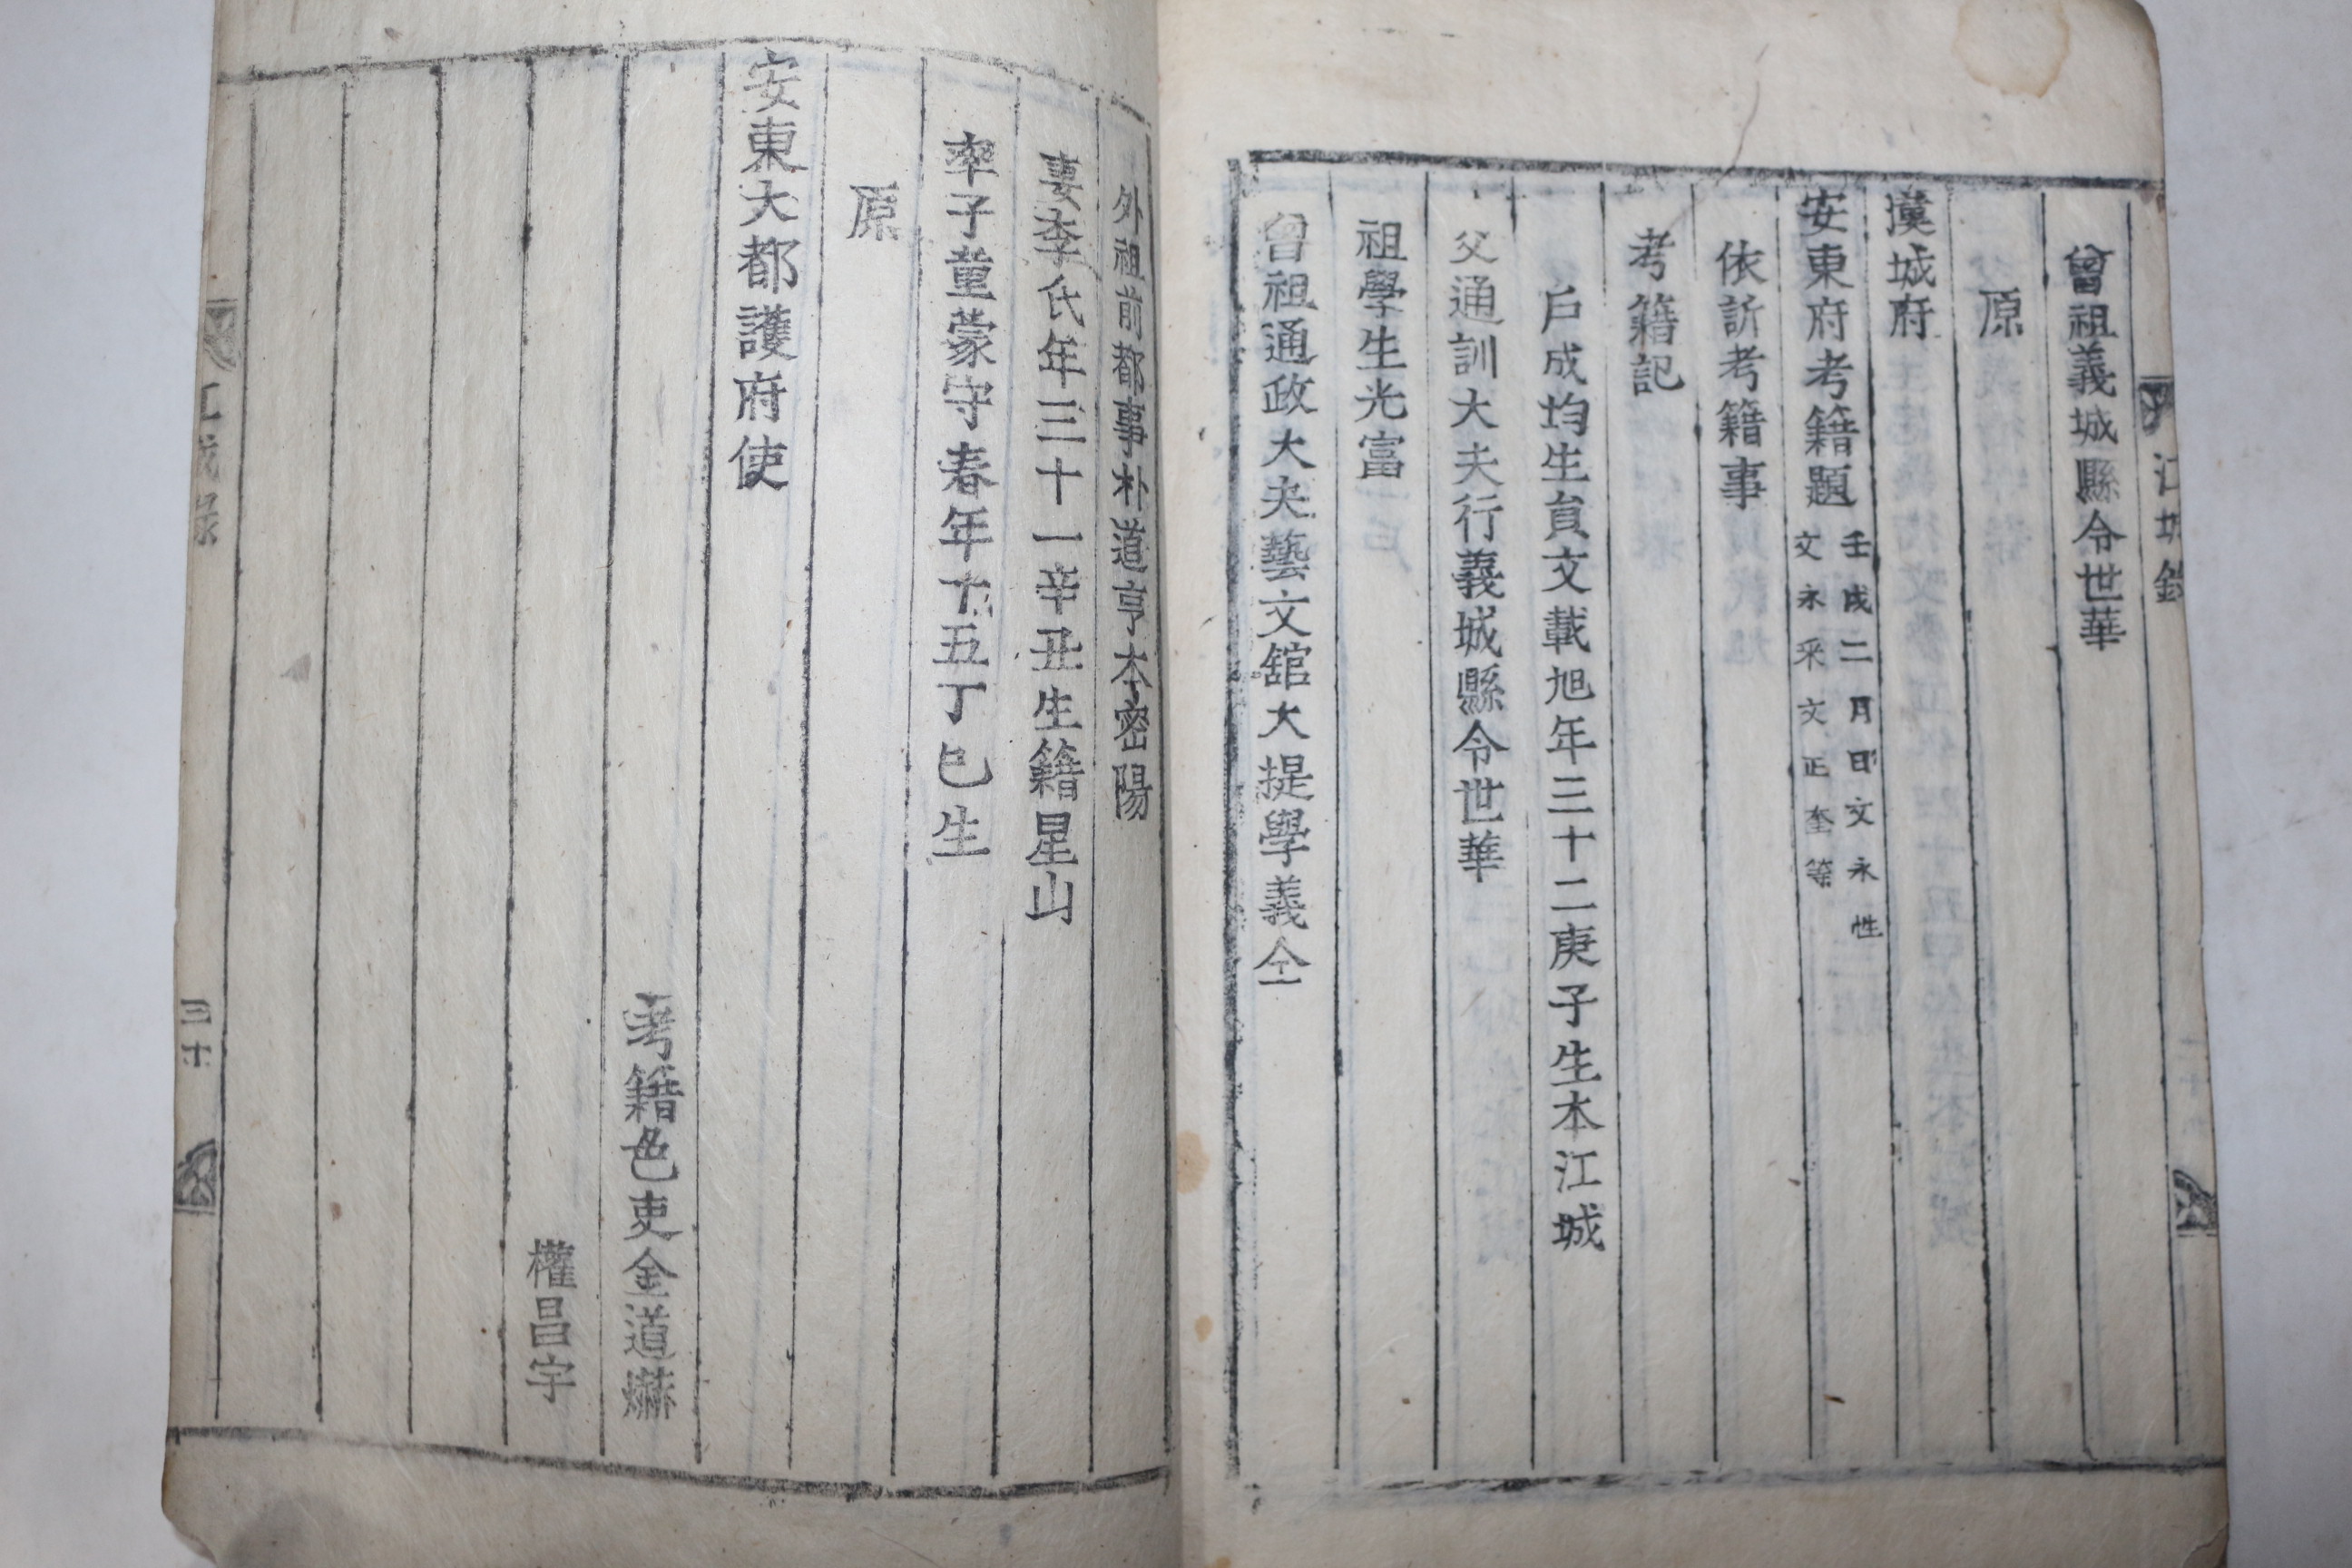 江城錄
曾祖義城縣令世華
原
漢城府
安東府考籍題
壬戌二月日文永性
文永采文正奎等
依訴考籍事
考籍記
戶成均生員文載旭年三十二庚子生本江城
父通訓大夫行義城縣令世華
祖學生光富
曾祖通政大夫藝文舘大提學義仝
外祖前都事朴道亨本密陽
妻李氏年三十一辛丑生籍星山
率子童蒙守春年十五丁巳生
原
安東大都護府使
考籍色吏金道爀
權昌宇
江城錄
三十